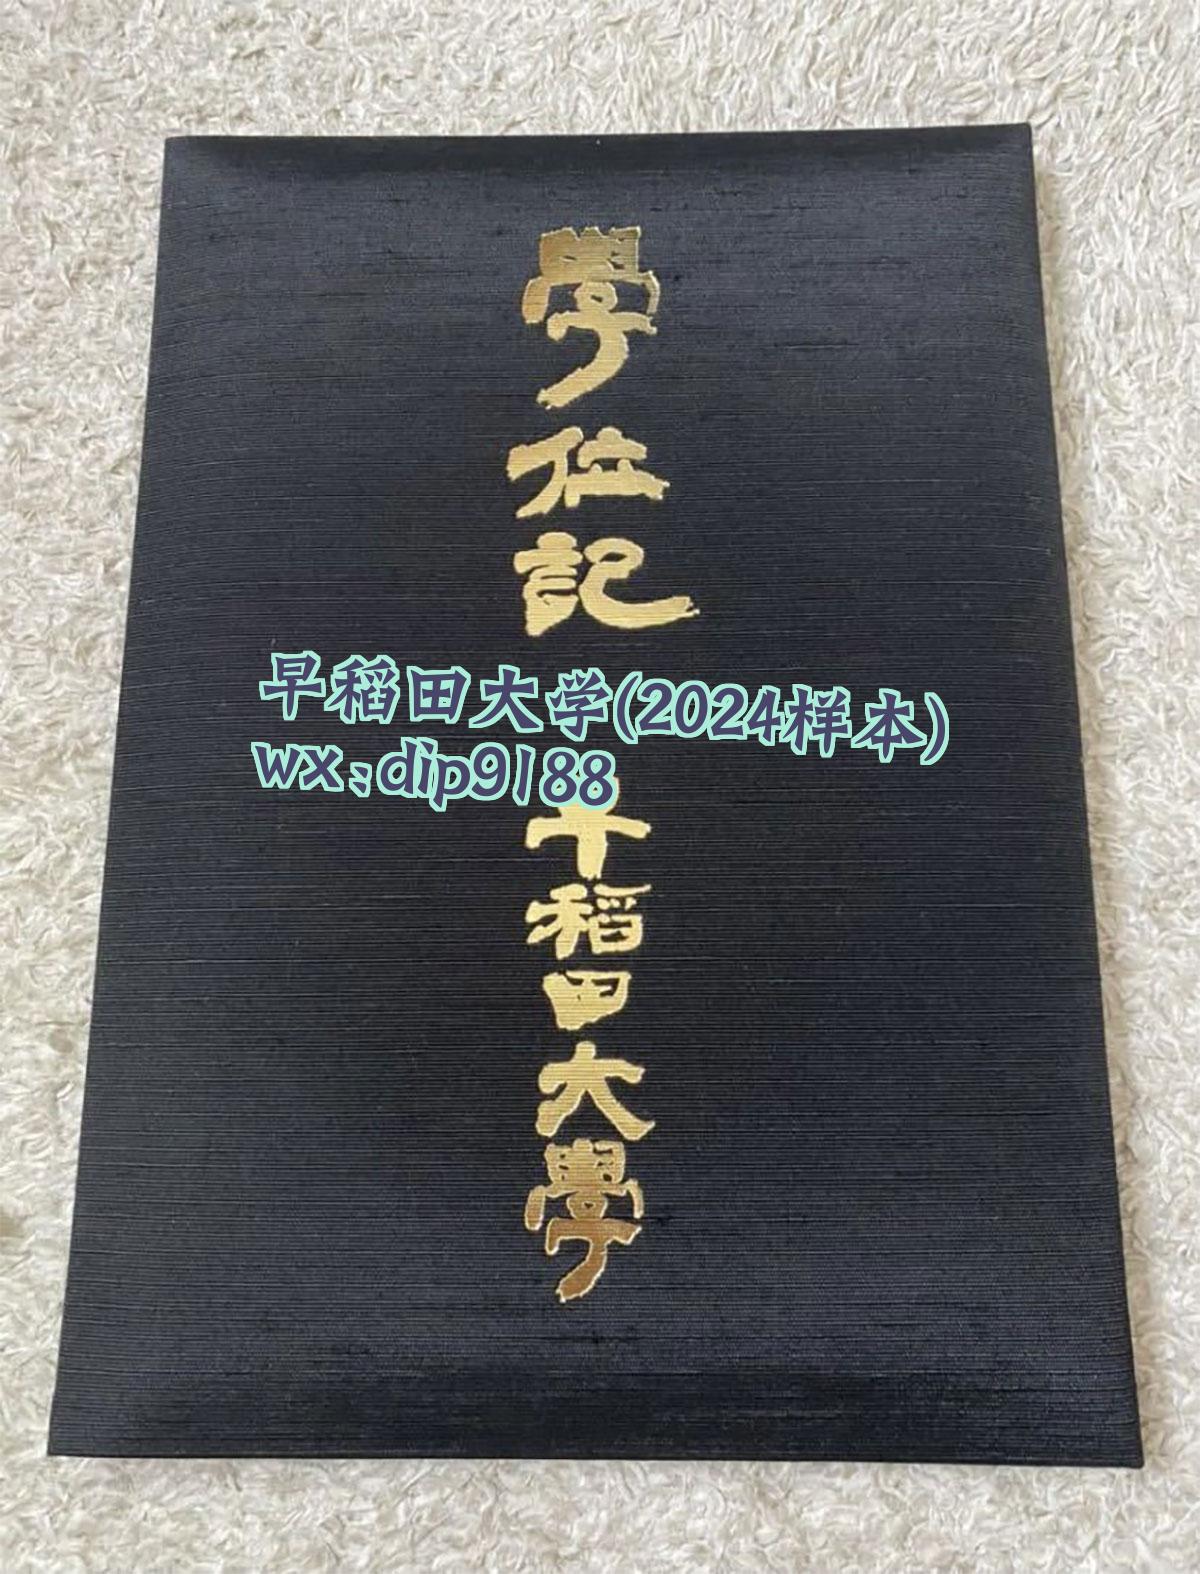 學位記
早稻田大学(2024样本)
wx:dip9188
早稻田大學